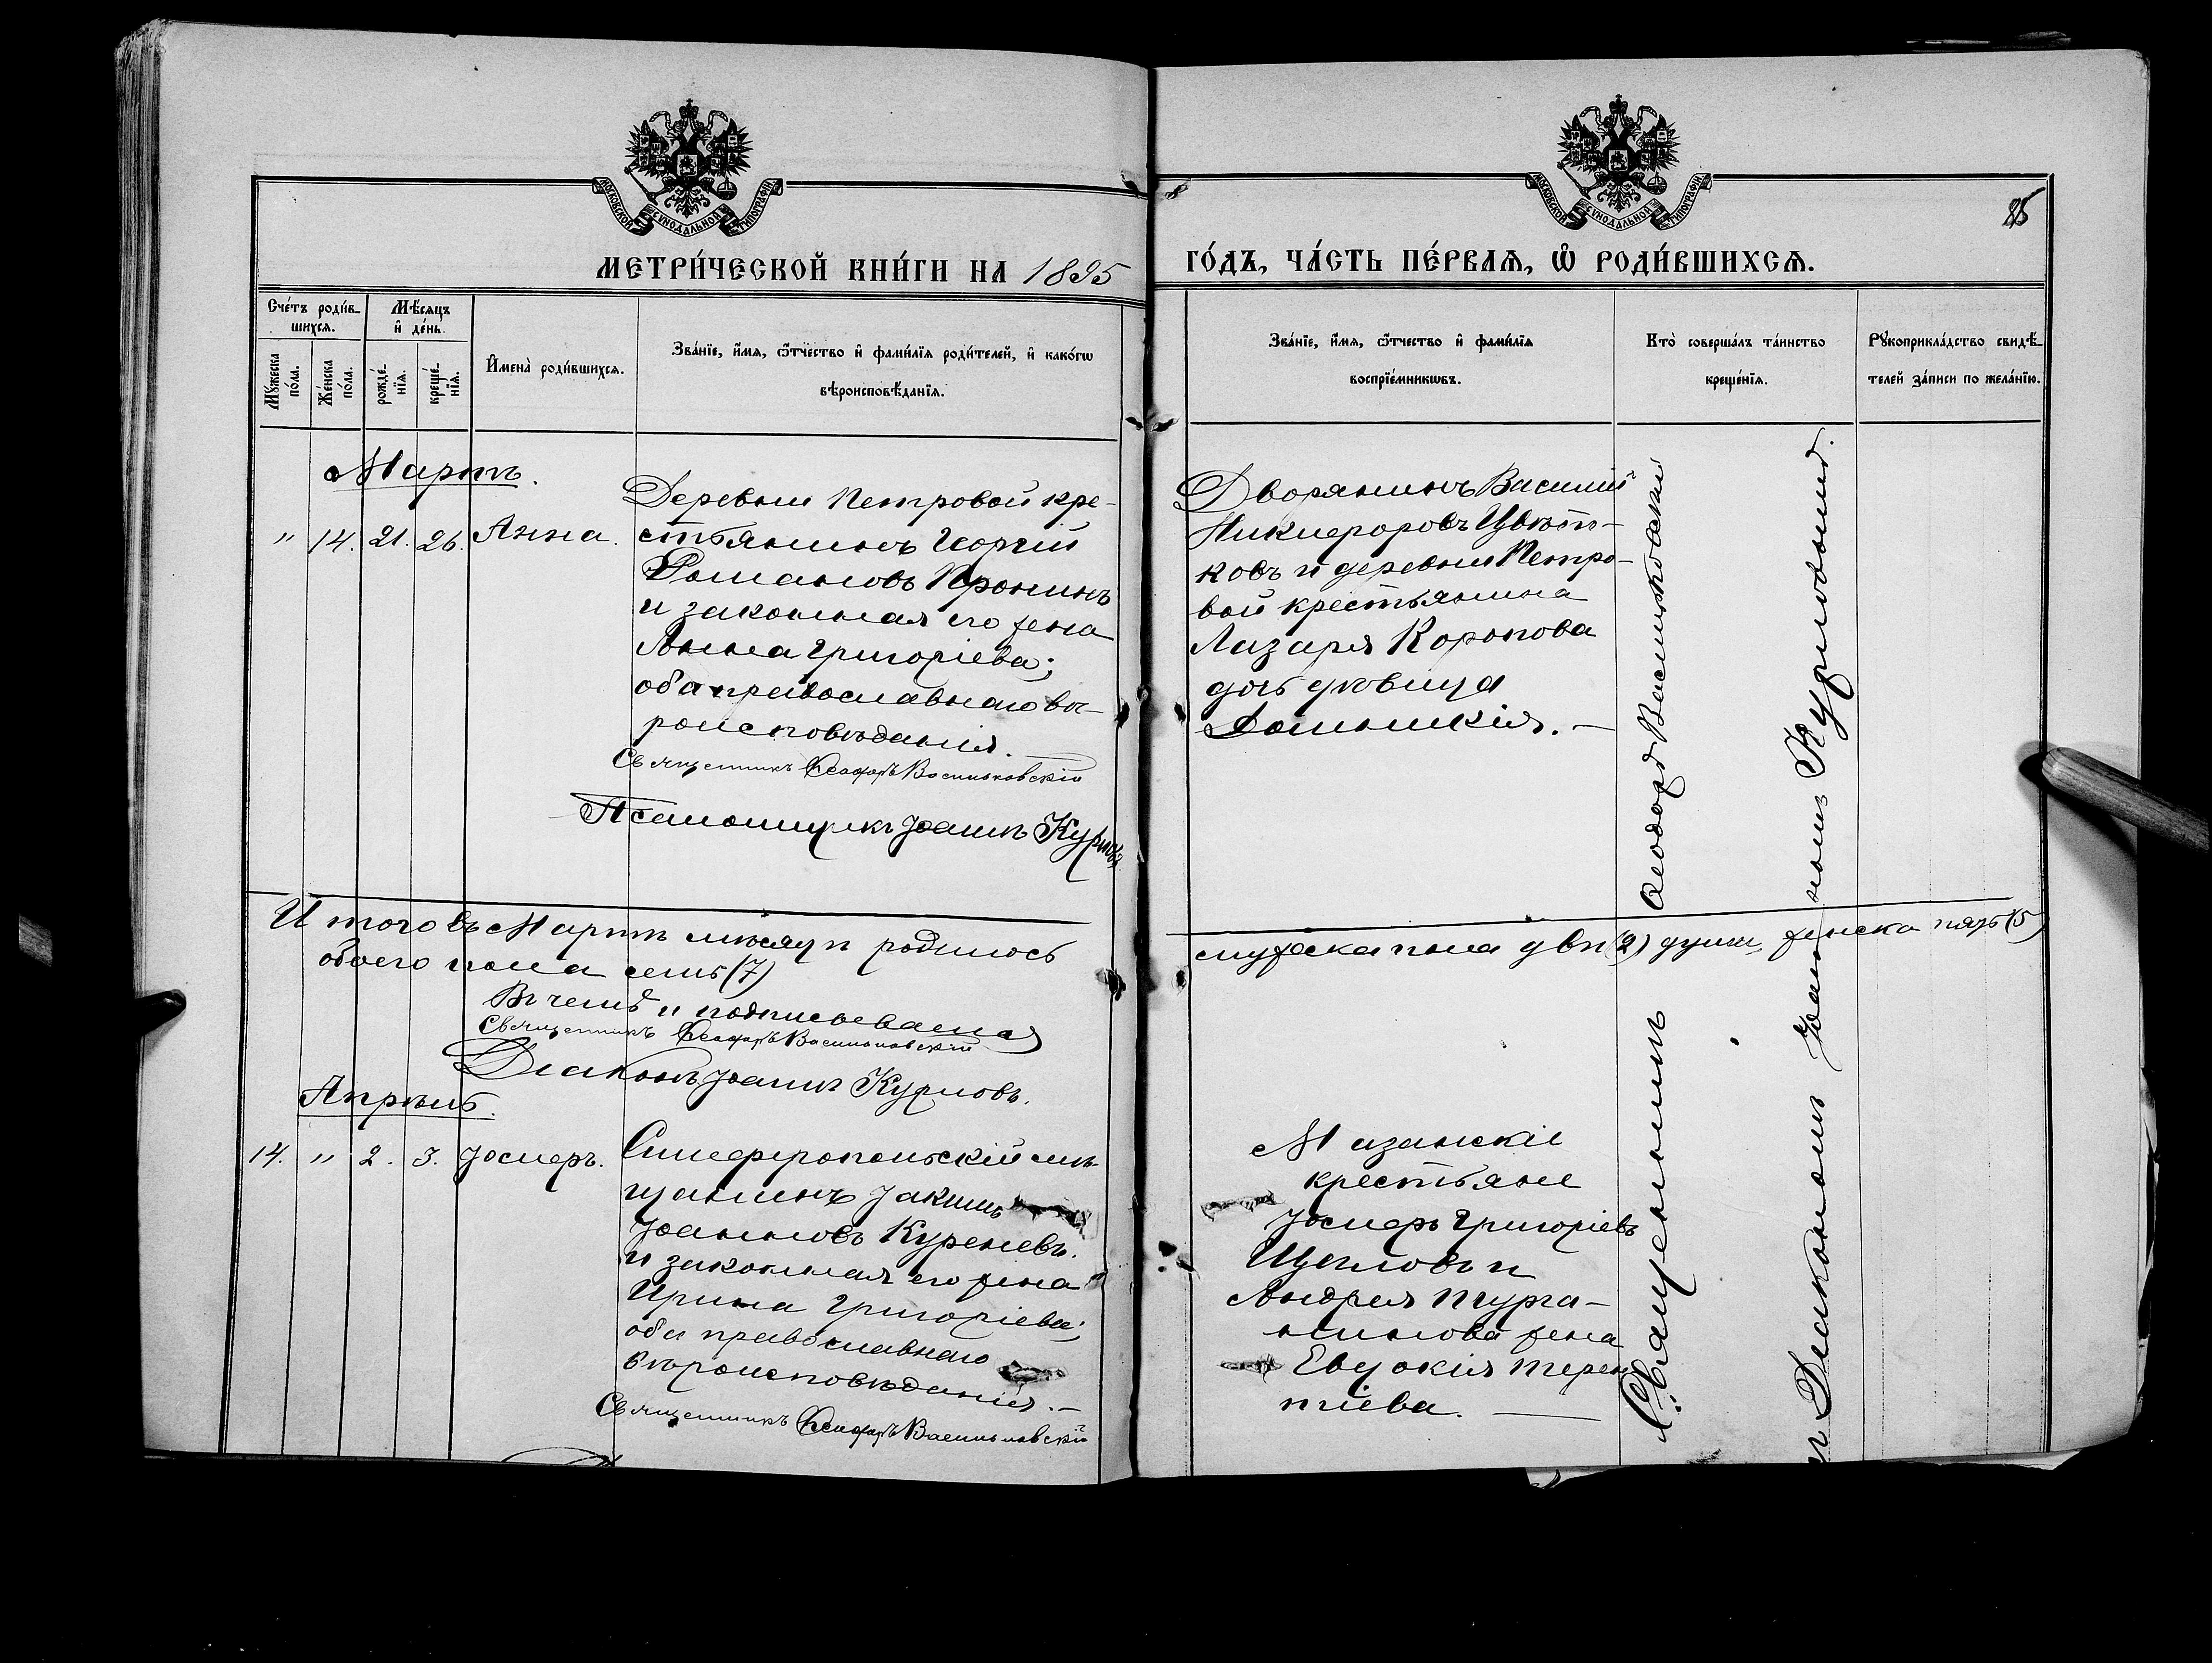 МОСКОВСКОЙ СѴНОДАЛЬНОЙ ТИПОГРАФІИ
МОСКОВСКОЙ СѴНОДАЛЬНОЙ ТИПОГРАФІИ
МЕТРИ́ЧЕСКОЙ КНИ́ГИ НА 1895
ГО́ДЪ, ЧА́СТЬ ПЕ́РВАѦ, Ѽ РОДИ́ВШИХСѦ.
Сче́тъ роди́в-
шихсѧ.
Мꙋжеска
по́ла.
Же́нска
по́ла.
Мѣ́сѧцъ
и҆ де́нь.
рожде́-
нїѧ.
креще́-
нїѧ.
И҆мена̀ роди́вшихсѧ.
Зва́нїе, и҆́мѧ, ѻ҆́тчество и҆ фами́лїѧ роди́телей, и҆ како́гѡ
вѣроисповѣ́данїѧ.
Зва́нїе, и҆́мѧ, ѻ҆́тчество и҆ фами́лїѧ
воспрїе́мникѡвъ.
Кто̀ соверша́лъ та́инство
креще́нїѧ.
Рꙋкоприкла́дство свидѣ́-
телей за́писи по жела́нїю.
Мартъ.
" 14. 21. 26. Анна.
Деревни Петровой кре-
стьянинъ Георгій
Романовъ Пронинъ
и законная его жена
Анна Григоріева;
оба православнаго вѣ-
роисповѣданія. —
Священникъ Ѳеодоръ Васильковскій
Псаломщикъ Іоаннъ Курловъ
Дворянинъ Василій
Никифоровъ Цвѣт-
ковъ и деревни Петро-
вой крестьянина
Лазаря
дочь дѣвица
Домникія. —
Итого въ Мартѣ мѣсяцѣ родилось
обоего пола семь (7)
мужеска пола двѣ (2) души, женска пять (5)
Въ чемъ и подписываемся
Священникъ Ѳеодоръ Васильковскій
Діаконъ Іоаннъ Курловъ.
Апрѣль.
14. " 2. 3. Іосифъ.
Симферопольскій мѣ-
щанинъ Іакимъ
Іоанновъ Куреневъ.
и законная его жена
Ирина Григоріева;
оба православнаго
вѣроисповѣданія. —
Священникъ Ѳеодоръ Васильковскій
Мазанскіе
крестьяне
Іосифъ Григоріевъ
Щегловъ и
Андрея Турга-
нинова жена
Евдокія Терен-
тіева. —
Священникъ Ѳеодоръ Васильковскій
съ Діакономъ Іоанномъ Курловымъ.